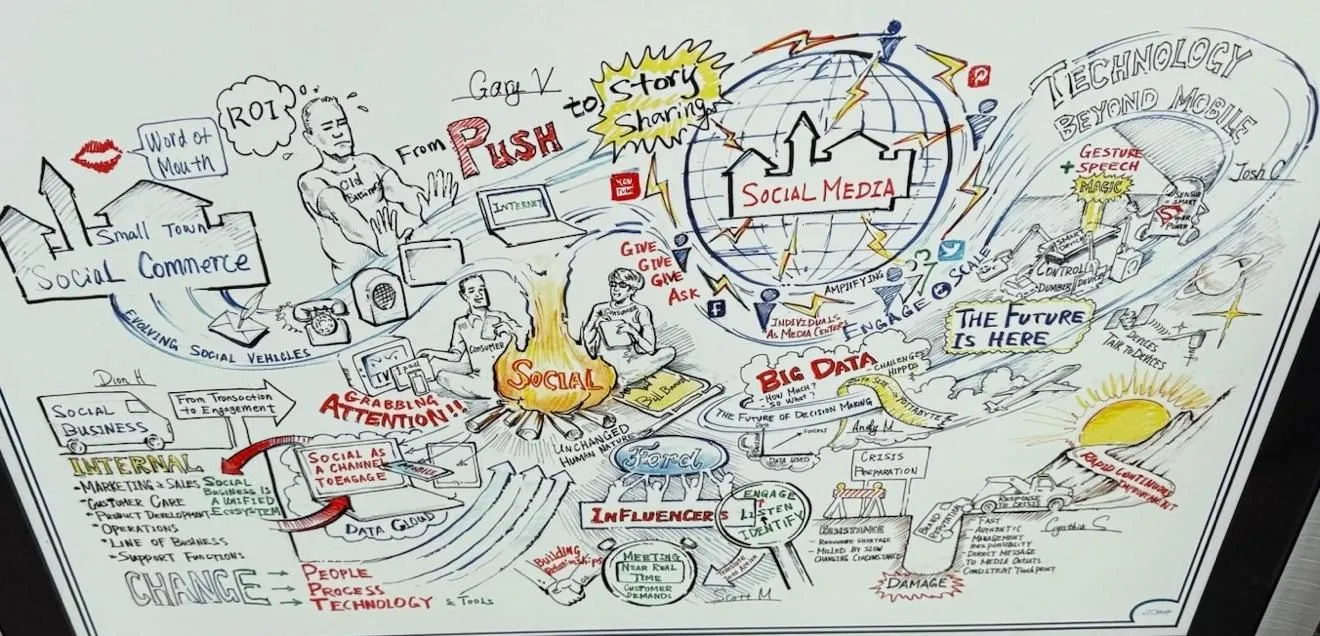 Word of
Mouth
ROI
Small Town
Social Commerce
EVOLVING SOCIAL VEHICLES
Old
Gary V
From PUSH
to Story
Sharing
INTERNET
YOU
TUBE
GIVE
GIVE
GIVE
ASK
CONSUMER
CONSUMER
TV
Ipad
SOCIAL
UNCHANGED
HUMAN NATURE
GRABBING
ATTENTION!!
SOCIAL MEDIA
INDIVIDUALS
AS MEDIA CENTERS
AMPLIFYING
ENGAGE
SCALE
TECHNOLOGY
BEYOND MOBILE
Josh C
GESTURE
+ SPEECH
MAGIC
SENSOR
SMART
POWER
SMART
DEVICE
CONTROL
DUMBER DEVICES
THE FUTURE
IS HERE
DEVICES
TALK TO DEVICES
BIG DATA
- HOW MUCH?
- SO WHAT?
- CHALLENGES
HIPPOS
THE FUTURE OF DECISION MAKING
Andy M
DATA USED
Dion H
SOCIAL
BUSINESS
From Transaction
to Engagement
INTERNAL
- MARKETING & SALES
• CUSTOMER CARE
• PRODUCT DEVELOPMENT
• OPERATIONS
• LINE OF BUSINESS
• SUPPORT FUNCTIONS
SOCIAL
BUSINESS IS
A UNIFIED
ECOSYSTEM
SOCIAL AS
A CHANNEL
TO ENGAGE
MOBILE
DATA CLOUD
CHANGE
PEOPLE
PROCESS
TECHNOLOGY & TOOLS
Ford
INFLUENCERS
ENGAGE
LISTEN
IDENTIFY
Building
Relationships
MEETING
NEAR REAL
TIME
CUSTOMER
DEMANDS
Scott M
CRISIS
PREPARATION
CHANGING CIRCUMSTANCE
BRAND
REPUTATION
DAMAGE
RESPONSE
TO CRISIS
FAST
AUTHENTIC
MANAGEMENT
RESPONSIBILITY
DIRECT MESSAGE
TO MEDIA OUTLETS
CONSISTENT TOUCHPOINT
Cynthia S
RAPID CONTINUOUS
IMPROVEMENT